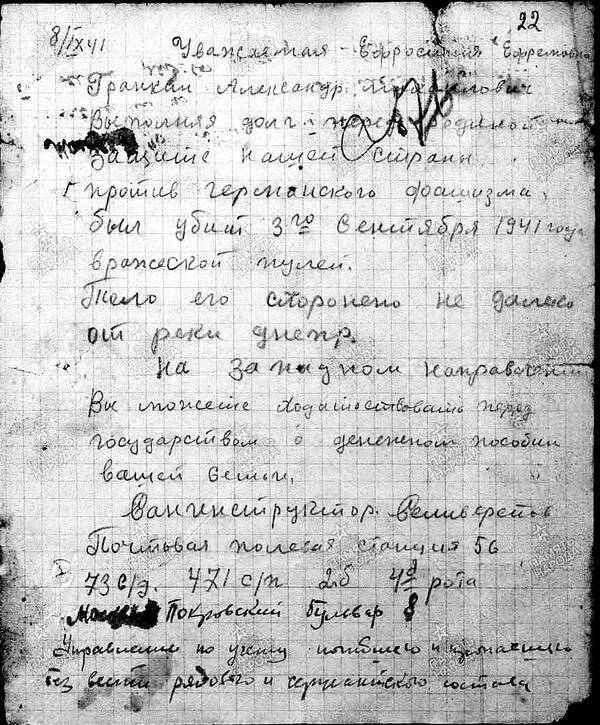 22
8/IX 41 Уважаемая - Ефросиния Ефремовна
Александр Михайлович
Выполняя долг перед родиной
защите нашей страны
против германского фашизма,
был убит 3го Сентября 1941 года
вражеской пулей.
Тело его сторонено не далеко
от реки днепр.
на западном направлении
Вы можете ходатоствовать перед
государством о денежном пособии
вашей семьи,
Санинструктор. Селиверстов
Почтовая полевая станция 56
73 с/д. 471 с/п 2 б 4я рота
Покровский бульвар 8
Управление по учету погибшего и пропавшего
без вести рядового и сержантского состава